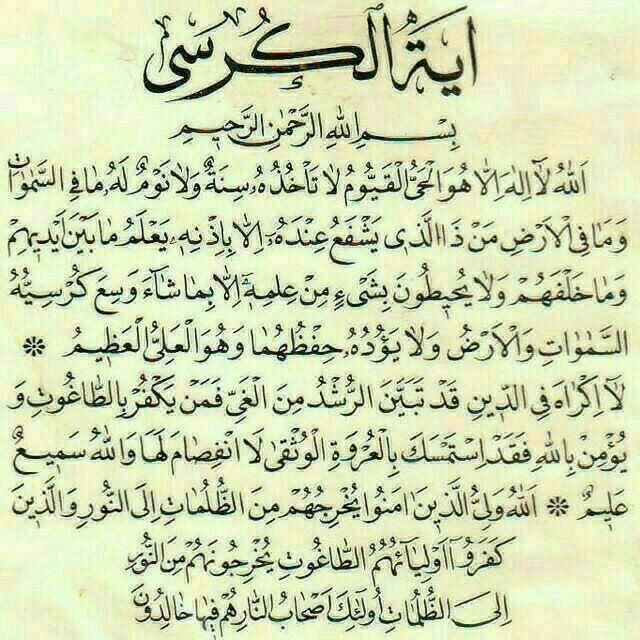 اٰيَةُ الْكُرْسٖى
بِسْمِ اللهِ الرَّحْمٰنِ الرَّحٖيمِ
اَللهُ لَٓا اِلٰهَ اِلَّا هُوَ الْحَىُّ الْقَيُّومُ لَا تَاْخُذُهُ سِنَةٌ وَلَا نَوْمٌ لَهُ مَا فِى السَّمٰوَاتِ
وَمَا فِى الْاَرْضِ مَنْ ذَا الَّذٖى يَشْفَعُ عِنْدَهُٓ اِلَّا بِاِذْنِهٖ يَعْلَمُ مَا بَيْنَ اَيْدٖيهِمْ
وَمَا خَلْفَهُمْ وَلَا يُحٖيطُونَ بِشَىْءٍ مِنْ عِلْمِهٖٓ اِلَّا بِمَا شَٓاءَ وَسِعَ كُرْسِيُّهُ
السَّمٰوَاتِ وَالْاَرْضَ وَلَا يَؤُدُهُ حِفْظُهُمَا وَهُوَ الْعَلِىُّ الْعَظٖيمُ ❋
لَٓا اِكْرَاهَ فِى الدّٖينِ قَدْ تَبَيَّنَ الرُّشْدُ مِنَ الْغَىِّ فَمَنْ يَكْفُرْ بِالطَّاغُوتِ وَ
يُؤْمِنْ بِاللهِ فَقَدِ اسْتَمْسَكَ بِالْعُرْوَةِ الْوُثْقٰى لَا انْفِصَامَ لَهَا وَاللهُ سَمٖيعٌ
عَلٖيمٌ ❋ اَللهُ وَلِىُّ الَّذٖينَ اٰمَنُوا يُخْرِجُهُمْ مِنَ الظُّلُمَاتِ اِلَى النُّورِ وَالَّذٖينَ
كَفَرُٓوا اَوْلِيَٓائُهُمُ الطَّاغُوتُ يُخْرِجُونَهُمْ مِنَ النُّورِ
اِلَى الظُّلُمَاتِ اُولٰٓئِكَ اَصْحَابُ النَّارِ هُمْ فٖيهَا خَالِدُونَ